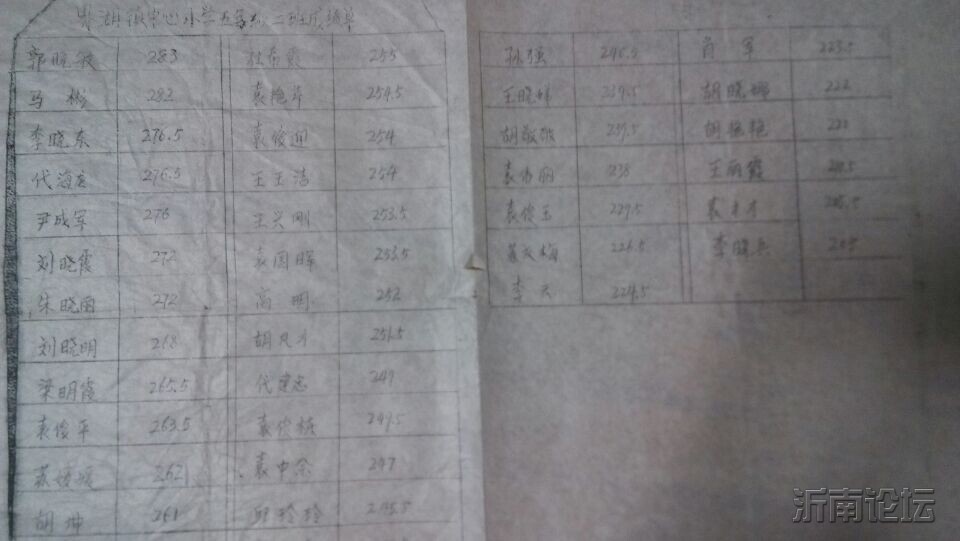 中心小学五年级二班成绩单
郭晓敏 283 杜希霞 255
马彬 282 袁艳芹 254.5
李晓东 276.5 袁俊迎 254
代海 276.5 王玉洁 254
尹成军 276 王兴刚 253.5
刘晓霞 272 袁国晖 253.5
朱晓丽 272 高明 252
刘晓明 268 胡尺才 251.5
梁明霞 265.5 代建志 249
袁俊平 263.5 袁俊栋 249.5
苏媛媛 262 袁中余 247
胡坤 261 邱玲玲
孙强 246.5 肖军 223.5
王晓 239.5 胡晓娜 222
胡敬敏 239.5 胡艳艳 220
袁伟丽 238 王丽霞
袁俊玉 229.5 袁才才
袁文梅 226.5 李晓兵
李云 224.5
沂南论坛